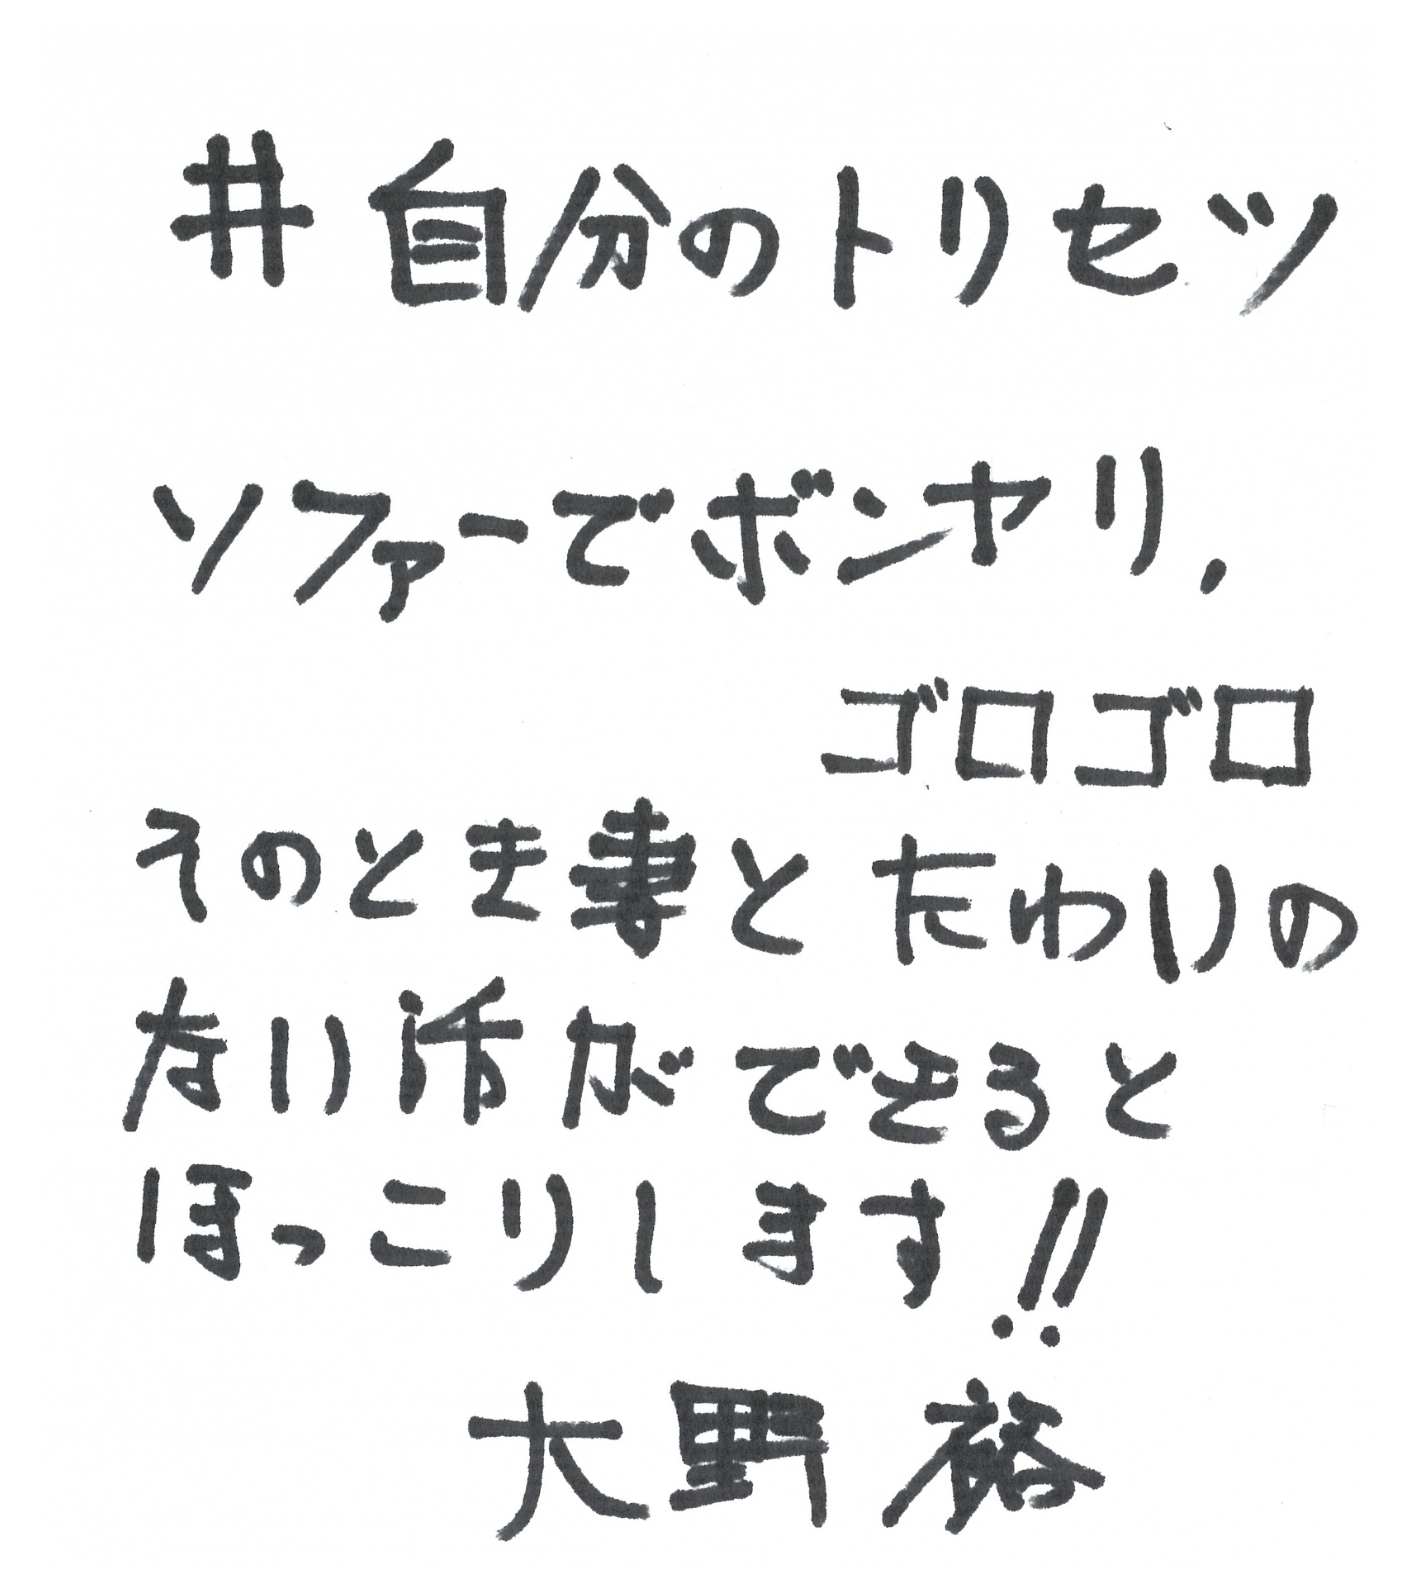 #自分のトリセツ
ソファーでボンヤリ,
ゴロゴロ
そのとき妻とたわいの
ない活ができると
ほっこりします!!
大野裕